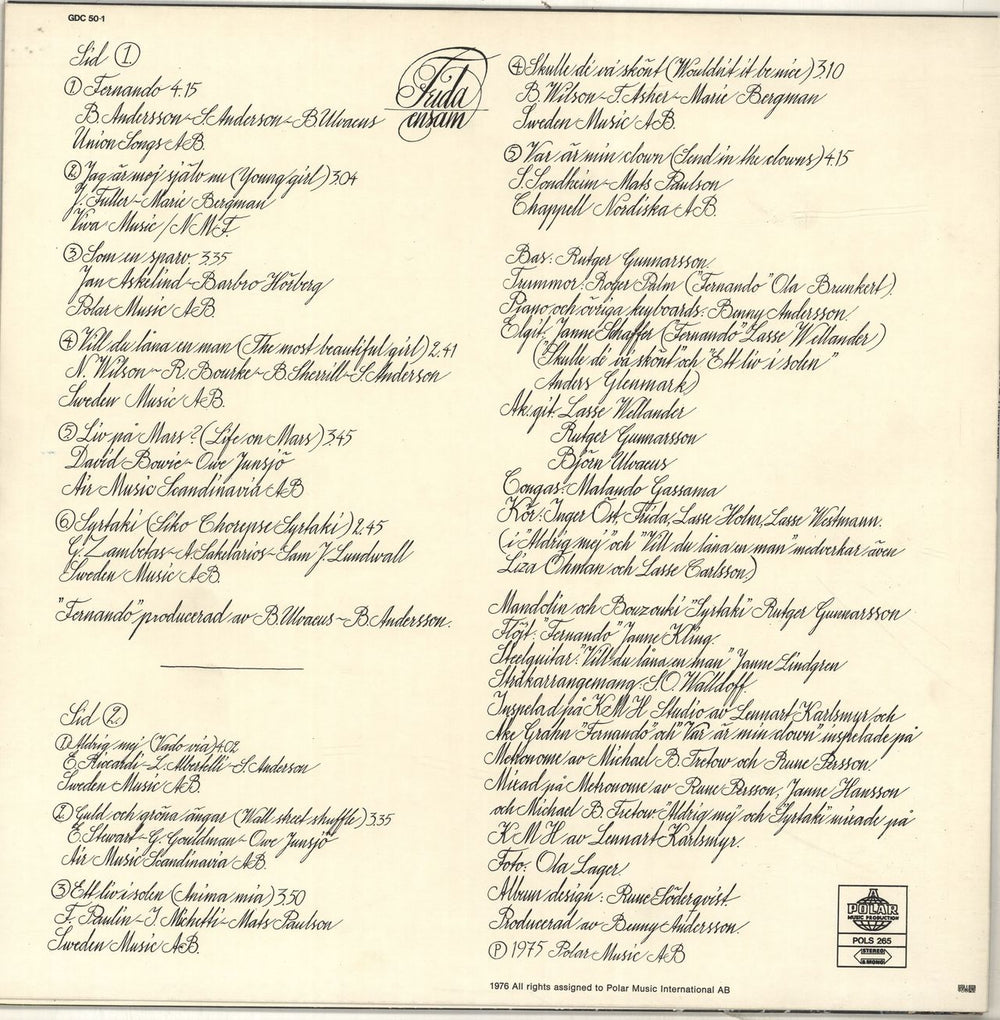 GDC 50-1
Sid 1.
1 Fernando 4.15
B. Andersson - S. Anderson - B Ulvaeus
Union Songs AB.
2 Jag är mej själv nu (Young girl) 3.04
J. Fuller - Marie Bergman
Viva Music / N.M.F.
3 Som en sparv. 3.35
Jan Askelind - Barbro Hörberg
Polar Music AB.
4 Vill du låna en man (The most beautiful girl) 2.41
N. Wilson - R. Bourke - B Sherrill - S. Anderson
Sweden Music AB.
5 Liv på Mars? (Life on Mars) 3.45
David Bowie - Owe Junsjö
Air Music Scandinavia AB
6 Syrtaki (Siko Chorepse Syrtaki) 2.45
G. Zambetas - A. Sakelarios - Sam J. Lundwall
Sweden Music AB.
"Fernando" producerad av B. Ulvaeus - B. Andersson.
Sid 2.
1 Aldrig mej (Vado via) 4.02
E. Riccardi - L. Albertelli - S. Anderson
Sweden Music AB.
2 Guld och gröna ängar (Wall street shuffle) 3.35
E. Stewart - G. Gouldman - Owe Junsjö
Air Music Scandinavia AB.
3 Ett liv i solen (Anima mia) 3.50
F. Paulin - I. Michetti - Mats Paulson
Sweden Music AB.
Frida
ensam
4 Skulle de' va' skönt (Wouldn't it be nice) 3.10
B. Wilson - T. Asher - Marie Bergman
Sweden Music AB.
5 Var är min clown (Send in the clowns) 4.15
S. Sondheim - Mats Paulson
Chappell Nordiska AB.
Bas: Rutger Gunnarsson.
Trummor: Roger Palm ("Fernando" Ola Brunkert).
Piano och övriga keyboards: Benny Andersson.
Elgit. Janne Schaffer (Fernando" Lasse Wellander)
("Skulle de' va' skönt" och "Ett liv i solen"
Anders Glenmark)
Ak. git. Lasse Wellander
Rutger Gunnarsson
Björn Ulvaeus
Congas: Malando Gassama
Kör: Inger Öst, Frida, Lasse Holm, Lasse Westmann.
(i "Aldrig mej" och "Vill du låna en man" medverkar även
Liza Öhman och Lasse Carlsson.)
Mandolin och Bouzouki "Syrtaki" Rutger Gunnarsson
Flöjt: "Fernando" Janne Kling.
Steelguitar: "Vill du låna en man" Janne Lindgren
Stråkarrangemang: S.O. Walldoff.
Inspelad på KMH Studio av Lennart Karlsmyr och
Åke Grahn "Fernando" och "Var är min clown" inspelade på
Metronome av Michael B. Tretow och Rune Persson.
Mixad på Metronome av Rune Persson, Janne Hansson
och Michael B. Tretow "Aldrig mej" och "Syrtaki" mixade på
KMH av Lennart Karlsmyr.
Foto: Ola Lager
Album design: Rune Söderqvist.
Producerad av Benny Andersson
℗ 1975 Polar Music AB
POLAR
MUSIC PRODUCTION
POLS 265
STEREO
& MONO
1976 All rights assigned to Polar Music International AB